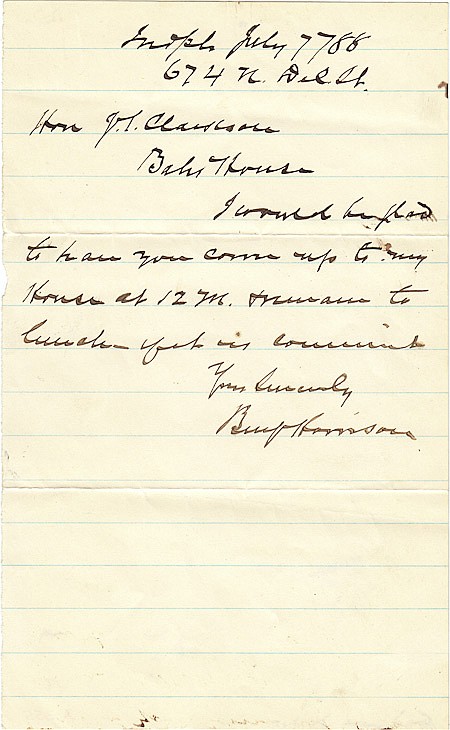 Indpls July 7 88
674 N. Del. St.
Hon J.S. Clarkson
Bates House
I would be glad
to have you come up to my
House at 12 M. & remain to
lunch if it is convenient
Yours Sincerely
Benj Harrison